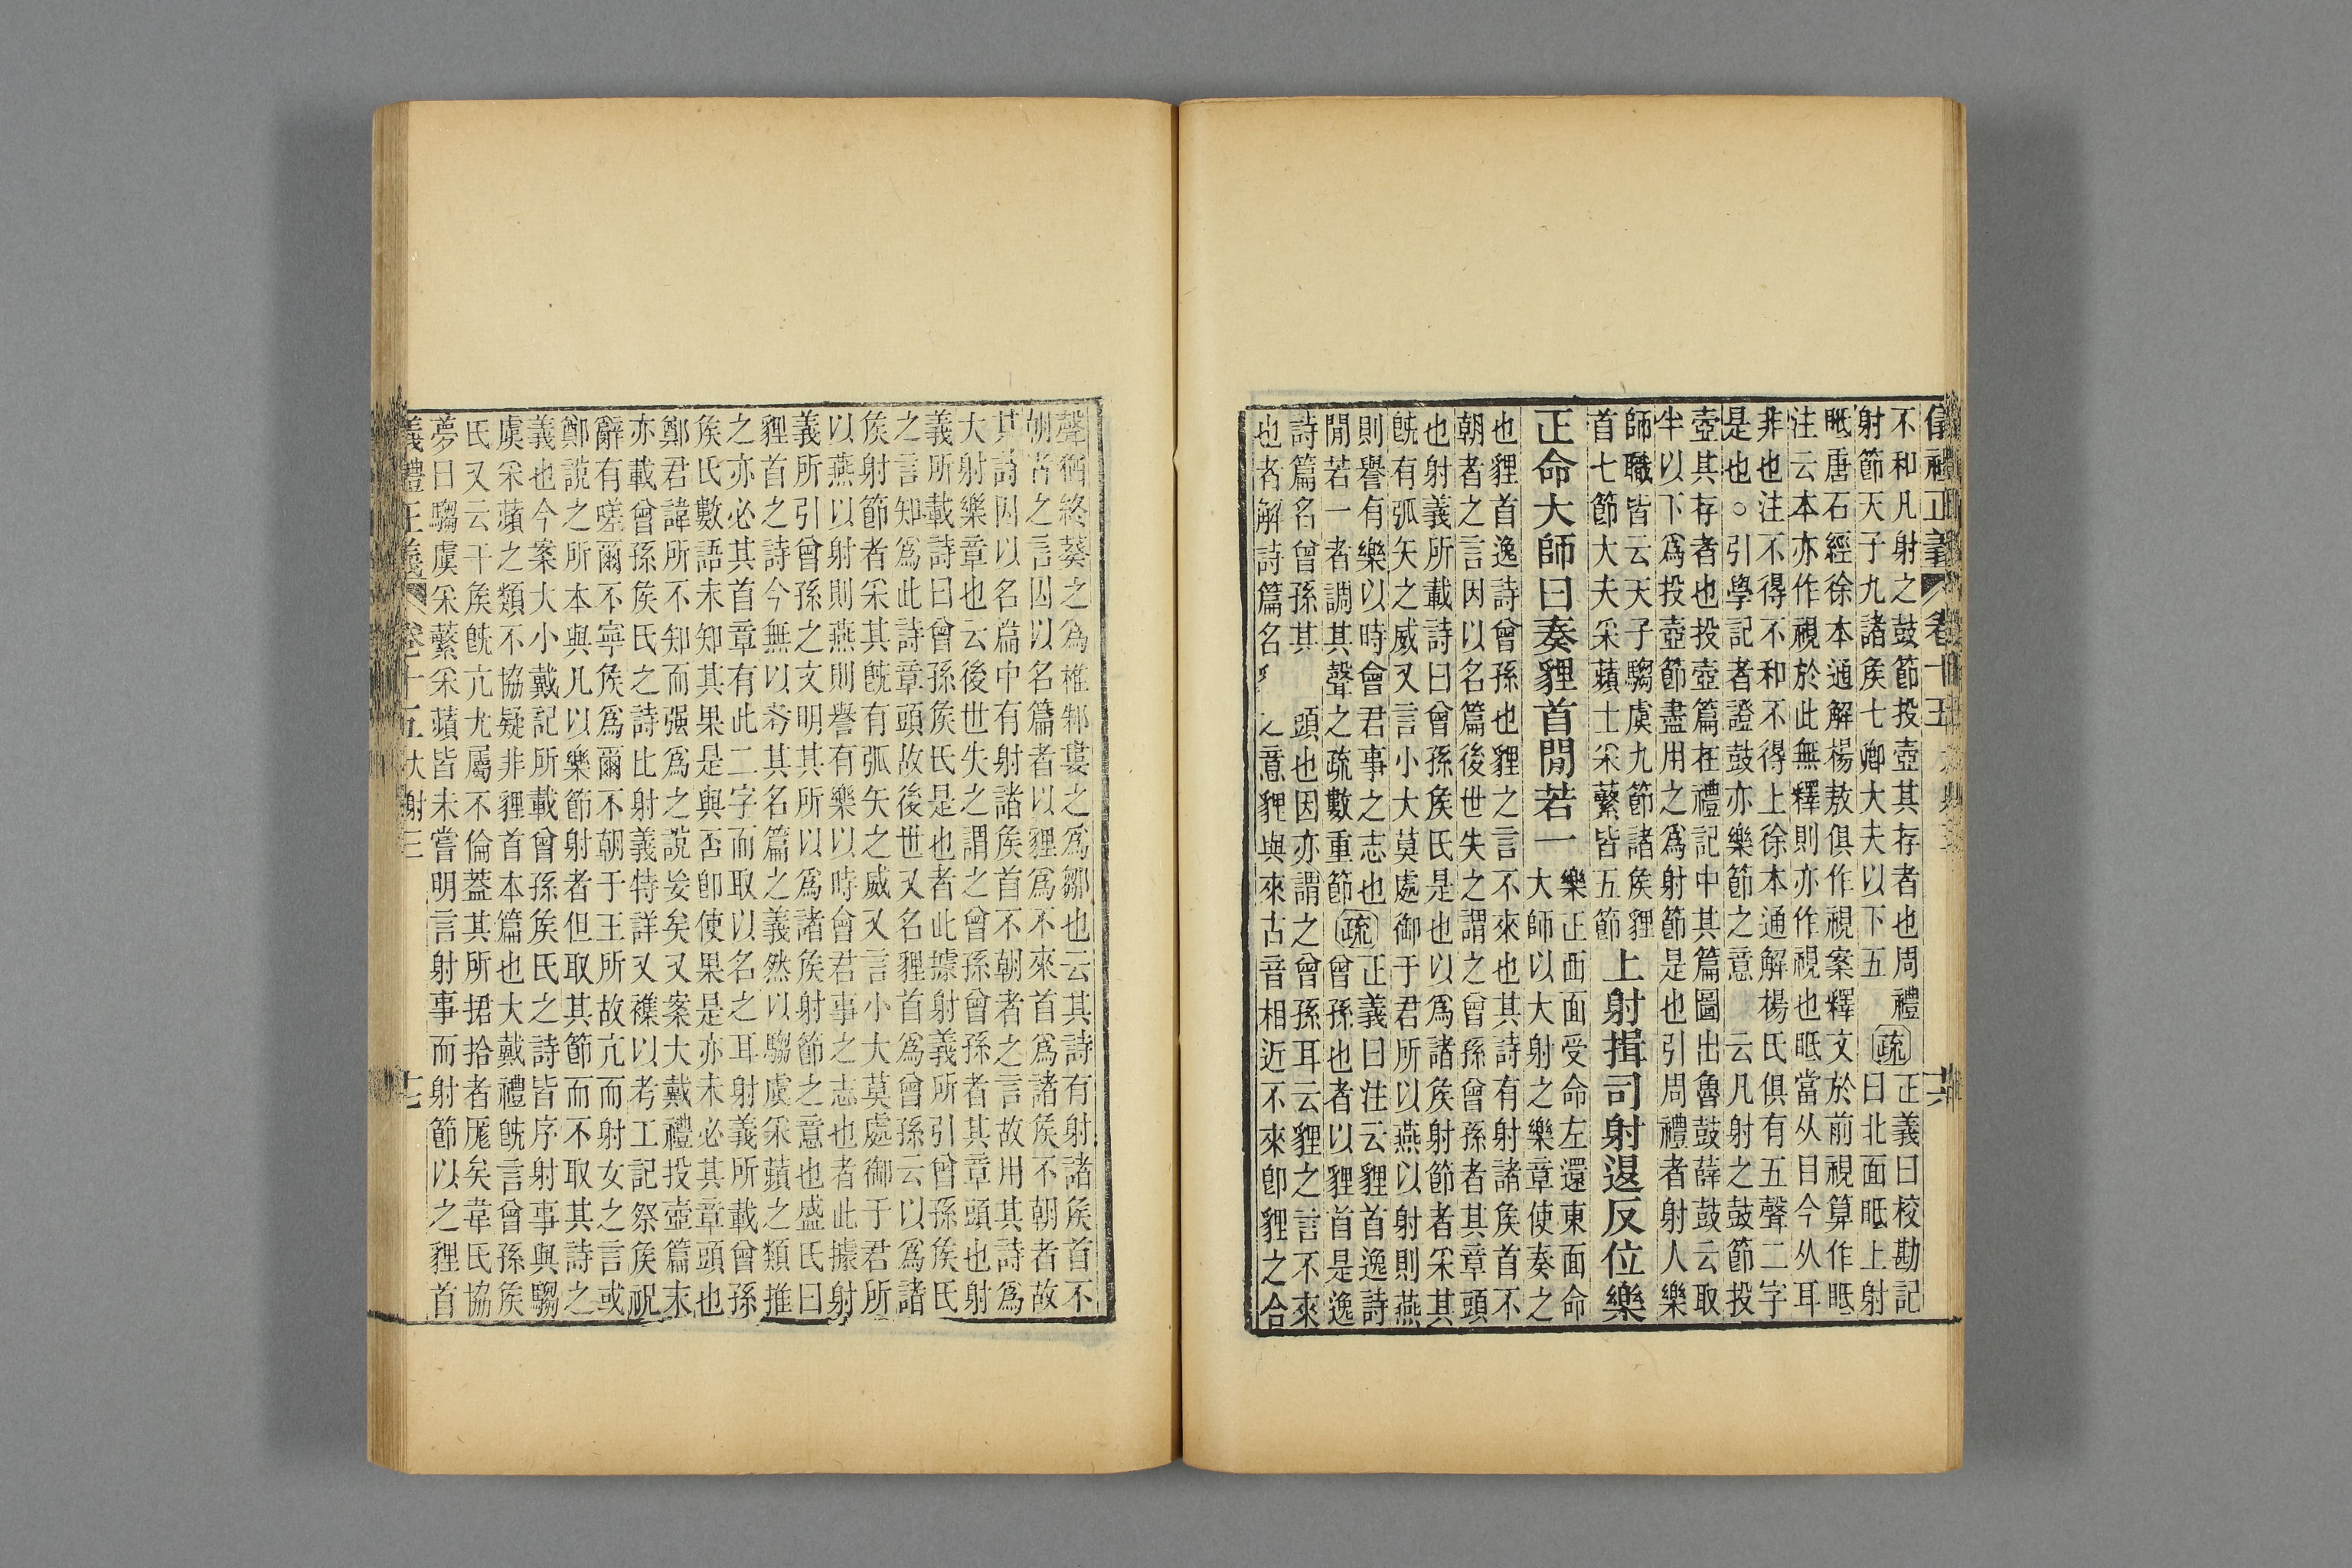 儀禮正義 卷十五
不和凡射之鼓節投壺其存者也周禮
射節天子九諸矦七卿大夫以下五
疏
正義曰校勘記
曰北面眡上射
眡唐石經徐本通解楊敖俱作視案釋文於前視算作眡
注云本亦作視於此無釋則亦作視也眡當从目今从耳
非也注不得不和不得上徐本通解楊氏俱有五聲二字
是也○引學記者證鼓亦樂節之意 云凡射之鼓節投
壺其存者也投壺篇在禮記中其篇圖出魯鼓薛鼓云取
半以下爲投壺節盡用之爲射節是也引周禮者射人樂
師職皆云天子騶虞九節諸矦貍
首七節大夫采蘋士采蘩皆五節
上射揖司射退反位樂
正命大師曰奏貍首閒若一
樂正西面受命左還東面命
大師以大射之樂章使奏之
也貍首逸詩曾孫也貍之言不來也其詩有射諸矦首不
朝者之言因以名篇後世失之謂之曾孫曾孫者其章頭
也射義所載詩曰曾孫矦氏是也以爲諸矦射節者采其
旣有弧矢之威又言小大莫處御于君所以燕以射則燕
則譽有樂以時會君事之志也
閒若一者調其聲之疏數重節
疏
正義曰注云貍首逸詩
曾孫也者以貍首是逸
詩篇名曾孫其 頭也因亦謂之曾孫耳云貍之言不來
也者解詩篇名 之意貍與來古音相近不來卽貍之合
聲猶終葵之爲椎邾婁之爲鄒也云其詩有射諸矦首不
朝者之言因以名篇者以貍爲不來首爲諸矦不朝者故
其詩因以名篇中有射諸矦首不朝者之言故用其詩爲
大射樂章也云後世失之謂之曾孫曾孫者其章頭也射
義所載詩曰曾孫矦氏是也者此據射義所引曾孫矦氏
之言知爲此詩章頭故後世又名貍首爲曾孫云以爲諸
矦射節者采其旣有弧矢之威又言小大莫處御于君所
以燕以射則燕則譽有樂以時會君事之志也者此據射
義所引曾孫之文明其所以爲諸矦射節之意也盛氏曰
貍首之詩今無以考其名篇之義然以騶虞采蘋之類推
之亦必其首章有此二字而取以名之耳射義所載曾孫
矦氏數語未知其果是與否卽使果是亦未必其章頭也
鄭君諱所不知而强爲之說妄矣又案大戴禮投壺篇末
亦載曾孫矦氏之詩比射義特詳又襍以考工記祭矦祝
辭有嗟爾不寧矦爲爾不朝于王所故亢而射女之言或
鄭說之所本與凡以樂節射者但取其節而不取其詩之
義也今案大小戴記所載曾孫矦氏之詩皆序射事與騶
虞采蘋之類不協疑非貍首本篇也大戴禮旣言曾孫矦
氏又云干矦旣亢尤屬不倫蓋其所捃拾者厖矣韋氏協
夢曰騶虞采蘩采蘋皆未嘗明言射事而射節以之貍首
義禮正義 卷十五 大射三